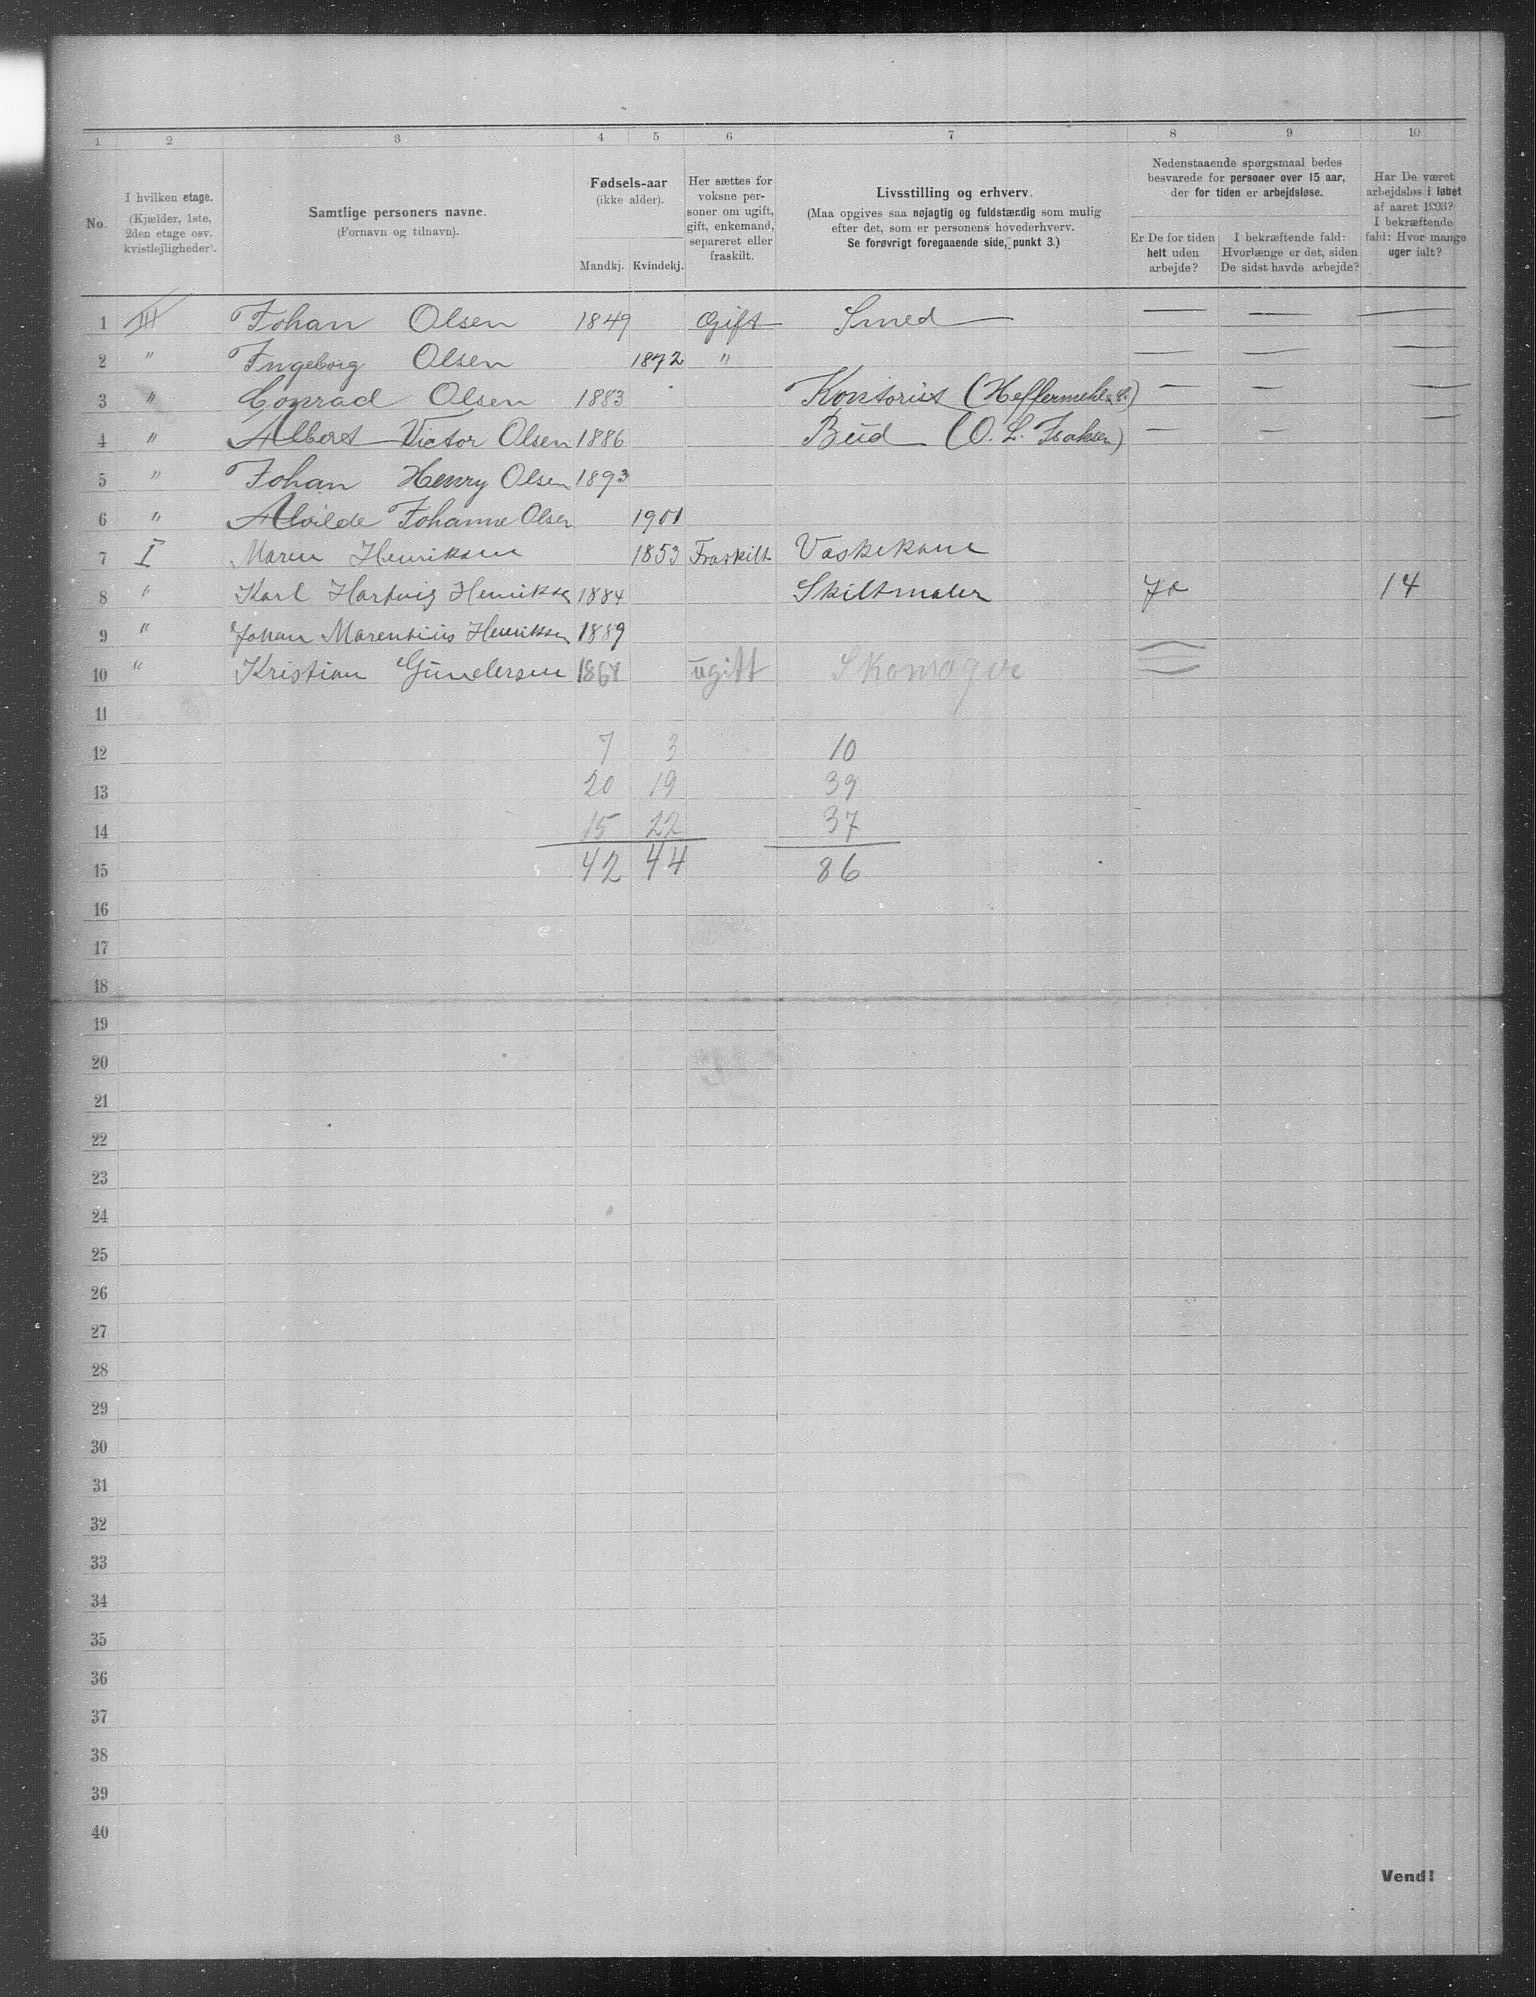 1 2 3 4 5 6 7 8 9 10
No.
I hvilken etage.
(Kjælder, 1ste,
2den etage osv.
kvistlejligheder).
Samtlige personers navne.
(Fornavn og tilnavn).
Fødsels-aar
(ikke alder).
Mandkj. Kvindekj.
Her sættes for
voksne per-
soner om ugift,
gift, enkemand,
separeret eller
fraskilt.
Livsstilling og erhverv.
(Maa opgives saa nøjagtig og fuldstærdig som mulig
efter det, som er personens hovederhverv.
Se forøvrigt foregaaende side, punkt 3.)
Nedenstaaende spørgsmaal bedes
besvarede for personer over 15 aar,
der for tiden er arbejdsløse.
Er De for tiden
helt uden
arbejde?
I bekræftende fald:
Hvorlænge er det, siden
De sidst havde arbejde?
Har De været
arbejdsløs i løbet
af aaret 1903?
I bekræftende
fald: Hvor mange
uger ialt?
1 III Johan Olsen 1849 Gift Smed — — —
2 " Ingeborg Olsen 1872 " — — —
3 " Conrad Olsen 1883 Kontorist — — —
4 " Albert Victor Olsen 1886 Bud (O. L. Isaksen) — — —
5 " Johan Henry Olsen 1893
6 " Alvilde Johanne Olsen 1901
7 I Maren Henriksen 1853 Fraskilt Vaskekone
8 " Karl Hartvig Henriksen 1884 Skiltmaler Ja 14
9 " Johan Marentius Henriksen 1889
10 " Kristian Gundersen ugift Skomager
11
12 7 3 10
13 20 19 39
14 15 22 37
15 42 44 86
16
17
18
19
20
21
22
23
24
25
26
27
28
29
30
31
32
33
34
35
36
37
38
39
40
Vend!